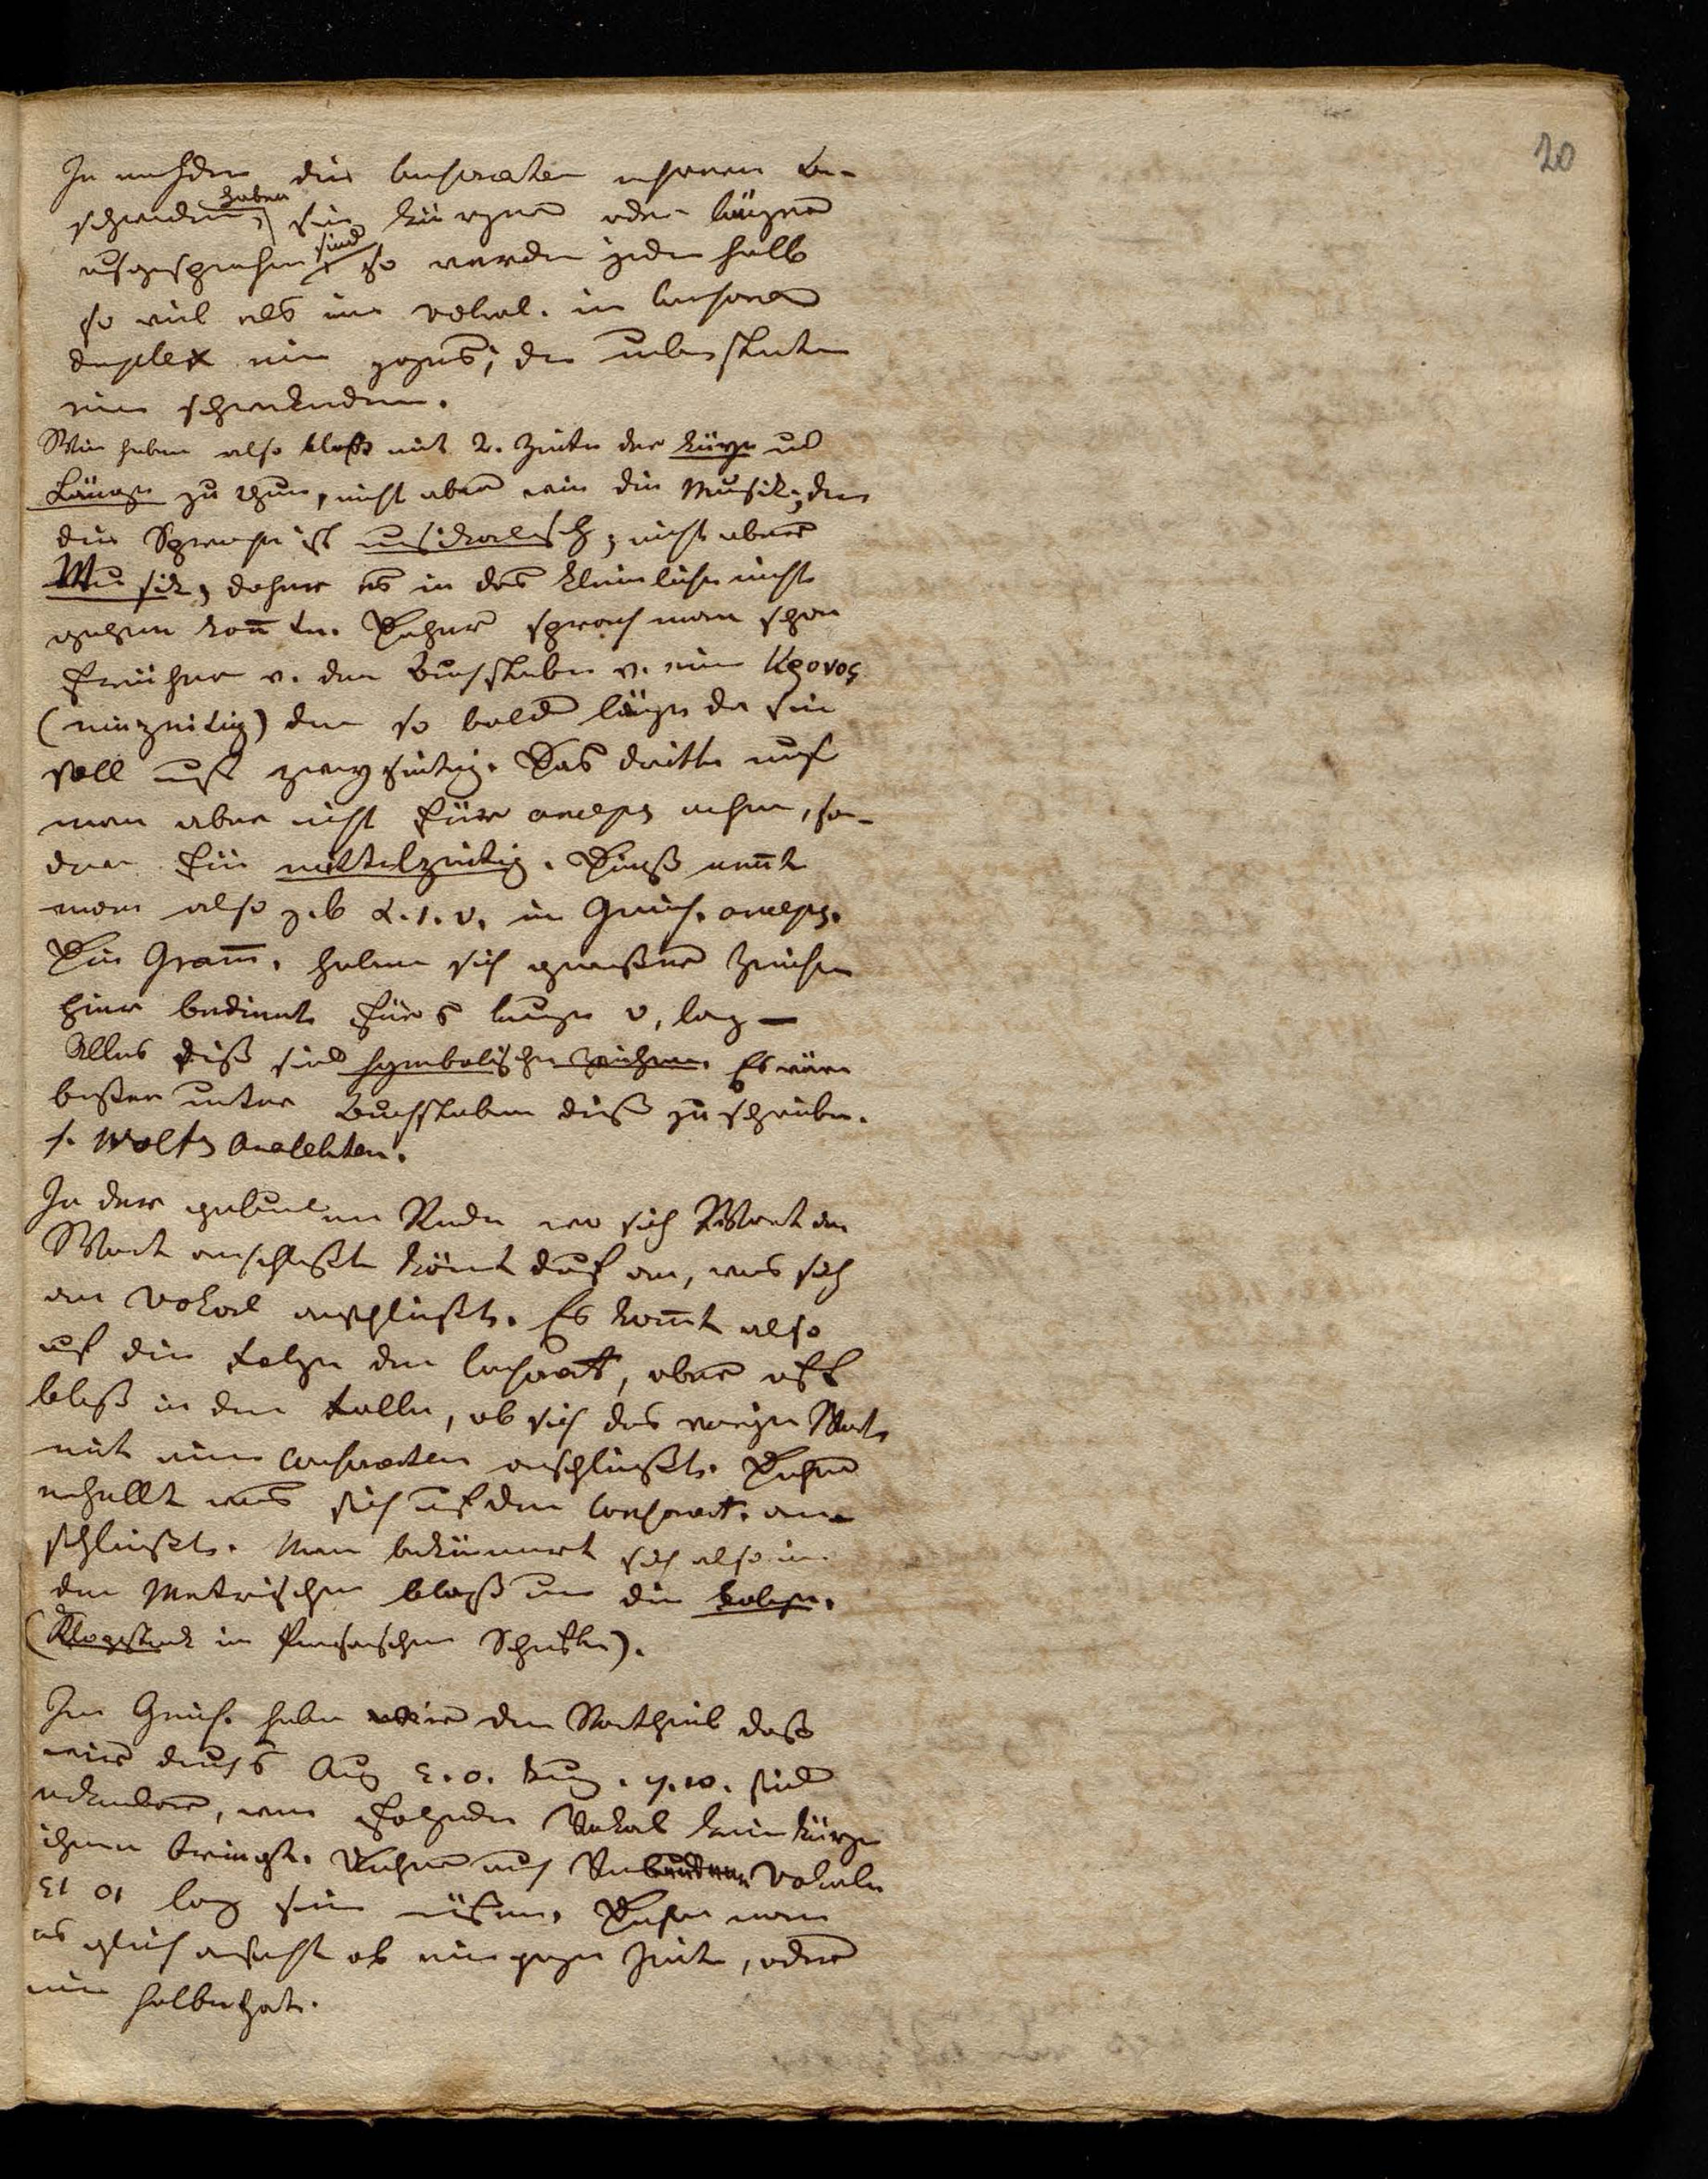 20
Je nachdem die Consonanten mehrere
haben
sie kürzer oder länger
ausgesprochen sind so werden jeder halb
so viel als ein vokal. ein Consonans
duplex ein ganzes; die
ein
Wir haben also bloß mit 2. Zeiten der Kürze und
Länge zu thun, nicht aber wie die Musik; denn
die Sprache ist musikalisch, nicht aber
Musik, daher es in das kleinliche nicht
gehen konnte. Daher sprach man schon
früher v. den Buchstaben v. ein Χρονος
(einzeitig) denn so bald länge da sein
soll muß zweyzeitig. Das dritte muß
man aber nicht für anceps nehmen, son-
dern für mittelzeitig. Dieß nennt
man also z.b α. ι. υ. im Griech. anceps.
Die Gram̅. haben sich gewisser Zeichen
hier bedient fürs kurze υ, lang —
Alles diß sind symbolische Zeichen. Es wäre
besser unter Buchstaben dieß zu schreiben.
s. Wolfs Analekten.
In der gebundenen Rede wo sich Wort an
Wort anschließt kömt drauf an, was sich
an Vokal anschließt. Es kom̅t also
auf die Folge der Consonant, aber oft
bloß in dem Falle, ob sich das vorige Wort
mit einem Consonanten anschließt. Daher
erhellt was sich auf den Consonant. an-
schließt. Man bekümmert sich also in
den Metrischen bloß um die Folge.
(Klopstock in Schriften).
Im Griech. haben wir den Vortheil daß
wir durchs Aug ε. ο. kurz. η. ω. sind
erkenbar, wenn folgender Vokal keine Kürze
ihnen bringt. Daher auch Vokale
ει οι lang sein müßen. Daher man
es gleich ansieht ob ein ganze Zeit, oder
eine halbe hat.